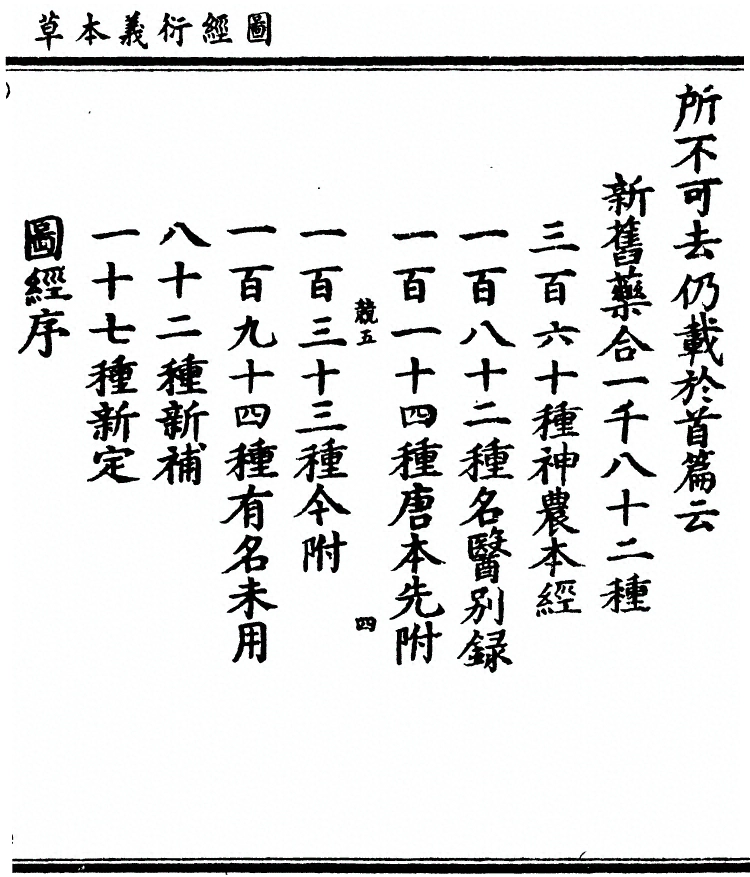 圖經衍義本草
所不可去仍載於首篇云
新舊藥合一千八十二種
三百六十種神農本經
一百八十二種名醫別録
一百一十四種唐本先附
競五 四
一百三十三種今附
一百九十四種有名未用
八十二種新補
一十七種新定
圖經序